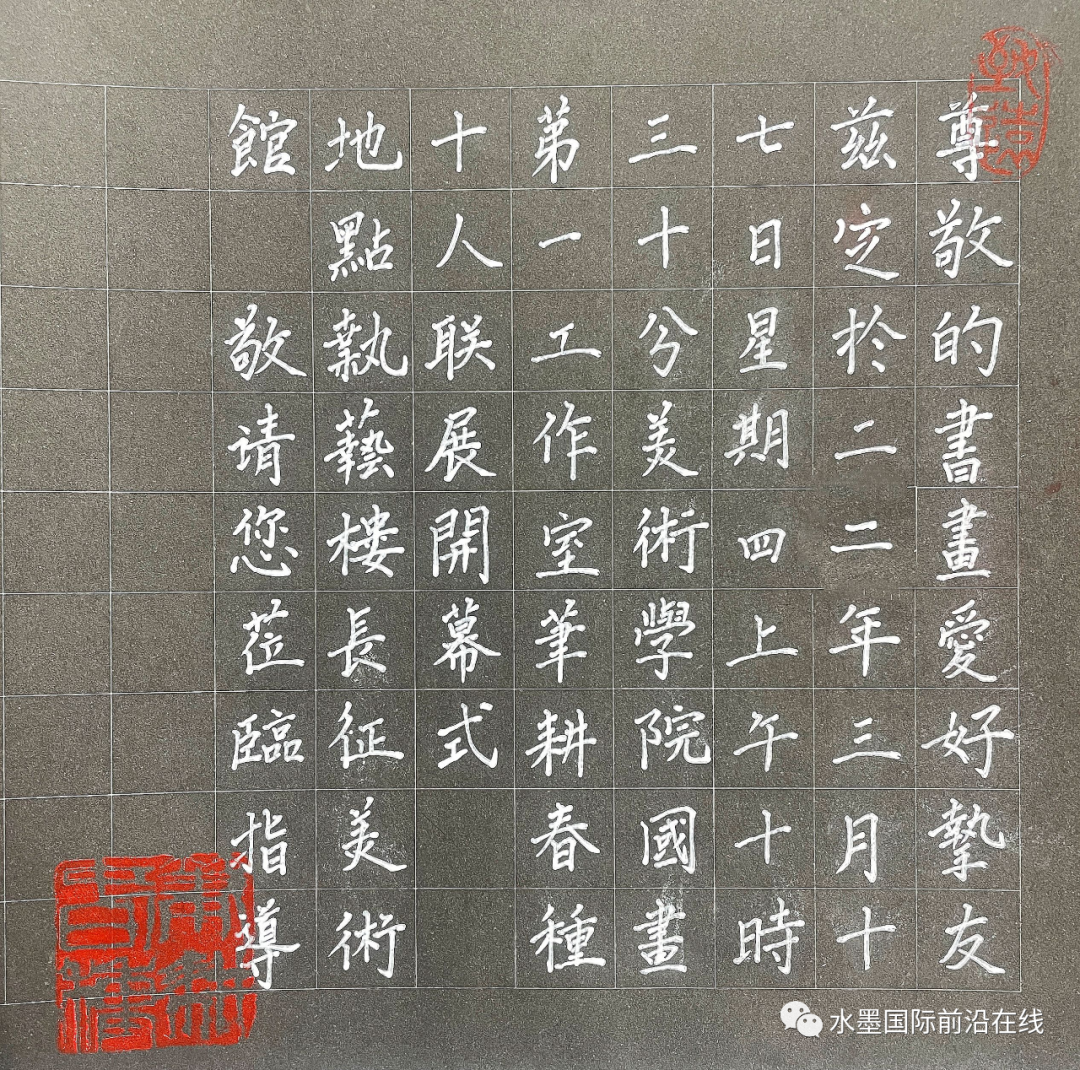 尊敬的書畫愛好摯友
兹定於二二年三月十
七日星期四上午十時
三十分美術學院國畫
第一工作室筆耕春種
十人联展開幕式
地點執藝樓長征美術
館 敬请您莅臨指導
水墨国际前沿在线